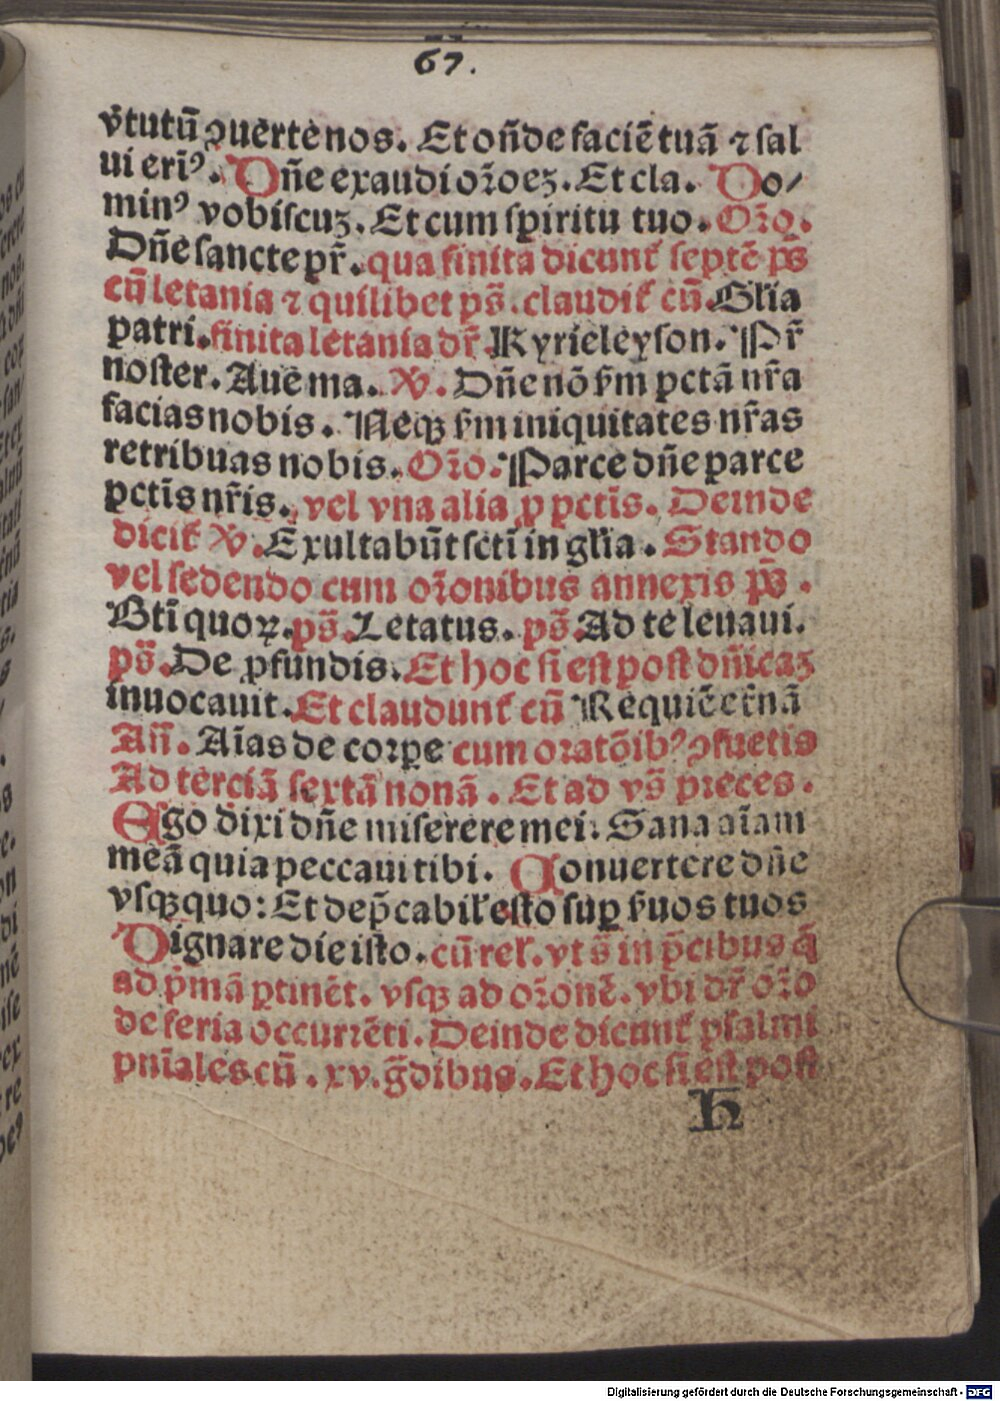 67.
v̄tutū ꝯuerte nos. Et on̄de faciē tuā ⁊ sal
ui erim̄ꝰ. Dn̄e exaudi or̄oeꝫ. Et cla. Do/
minꝰ vobiscuꝫ. Et cum spiritu tuo. Or̄o.
Dn̄e sancte pr̄. qua finita dicunt̄ septē ps̄
cū letania ⁊ quilibet ps̄. claudit̄ cū Gl̄ia
patri. finita letania dr̄ Kyrieleyson. Pr̄
noster. Aue ma. V̄. Dn̄e nō s̄m pctā nr̄a
facias nobis. Neqꝫ s̄m iniquitates nr̄as
retribuas nobis. Or̄o. Parce dn̄e parce
pctīs nr̄is. vel vna alia ꝓ pctīs. Deinde
dicit̄ V̄. Exultabūt sctī in gl̄ia. Stando
vel sedendo cum or̄onibus annexis ps̄.
Btī quoꝝ. ps̄. Letatus. ps̄. Ad te leuaui.
ps̄. De ꝓfundis. Et hoc si est post dn̄icaꝫ
inuocauit. Et claudunt̄ cū Requiē et̄nā
An̄. Aīas de corꝑe cum oratōibꝰ ꝯsuetis
Ad terciā sextā nonā. Et ad vs̄ preces.
Ego dixi dn̄e miserere mei: Sana aīam
meā quia peccaui tibi. Conuertere dn̄e
vsqꝫquo: Et dep̄cabil̄ esto suꝑ s̄uos tuos
Dignare die isto. cū rel̄. vt s̄ in p̄cibus q̄
ad p̄mā ꝑtinēt. vsqꝫ ad or̄onē. vbi dr̄ or̄o
de feria occurrēti. Deinde dicunt̄ psalmi
pn̄iales cū. xv. ḡdibus. Et hoc si est post
H
Digitalisierung gefördert durch die Deutsche Forschungsgemeinschaft - DFG